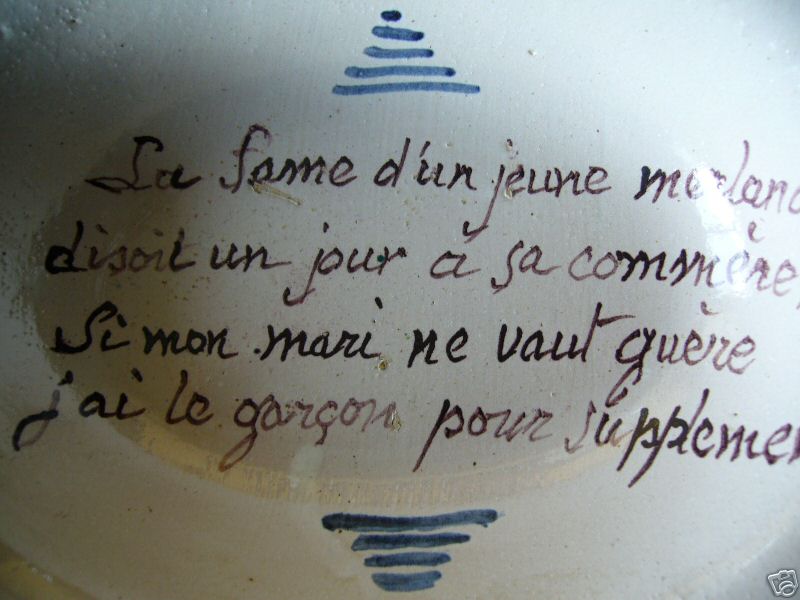 La fame d'un jeune merland
disoit un jour à sa commère,
Si mon mari ne vaut guère
j'ai le garçon pour supplemen